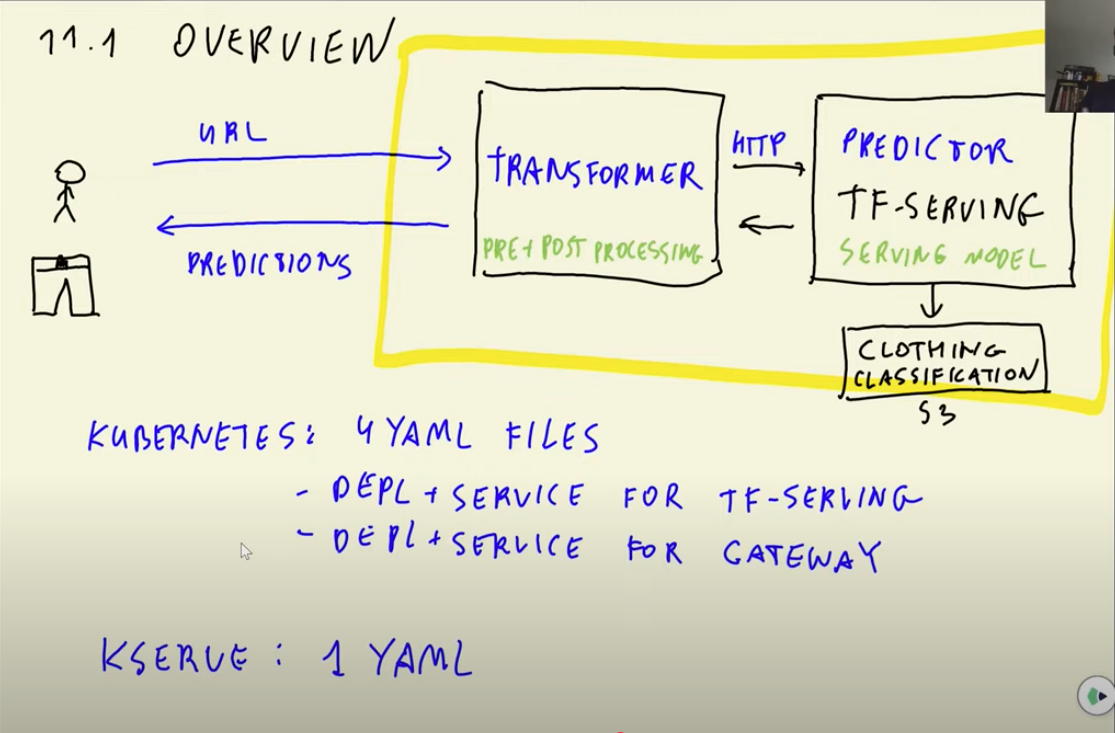 11.1 OVERVIEW
URL
PREDICTIONS
TRANSFORMER
PRE + POST PROCESSING
HTTP
PREDICTOR
TF-SERVING
SERVING MODEL
CLOTHING
CLASSIFICATION
S3
KUBERNETES: 4 YAML FILES
- DEPL + SERVICE FOR TF-SERVING
- DEPL + SERVICE FOR GATEWAY
KSERVE: 1 YAML